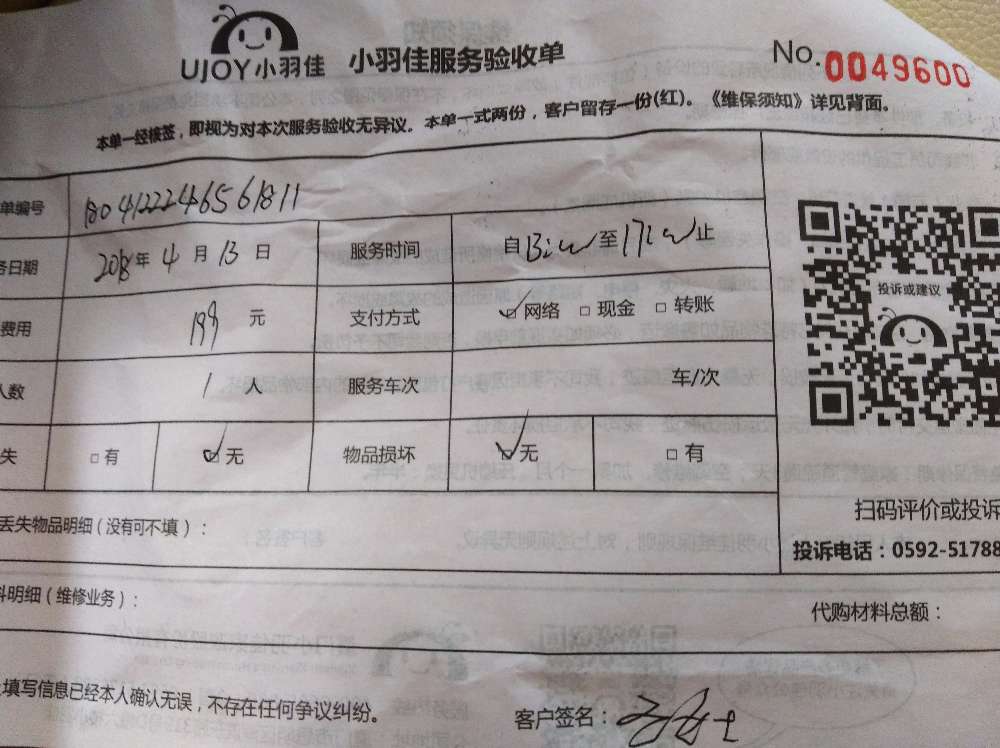 UJOY小羽佳 小羽佳服务验收单 No. 0049600
本单一经核签，即视为对本次服务验收无异议。本单一式两份，客户留存一份(红)。《维保须知》详见背面。
单编号 1804122246561811
务日期 2018年 4月 13日 服务时间 自13:00至17:00止
费用 199 元 支付方式 网络 现金 转账
人数 1 人 服务车次 车/次
失 有 无 物品损坏 无 有
投诉或建议
扫码评价或投诉
投诉电话：0592-51788
丢失物品明细（没有可不填）：
料明细（维修业务）： 代购材料总额：
填写信息已经本人确认无误，不存在任何争议纠纷。 客户签名：